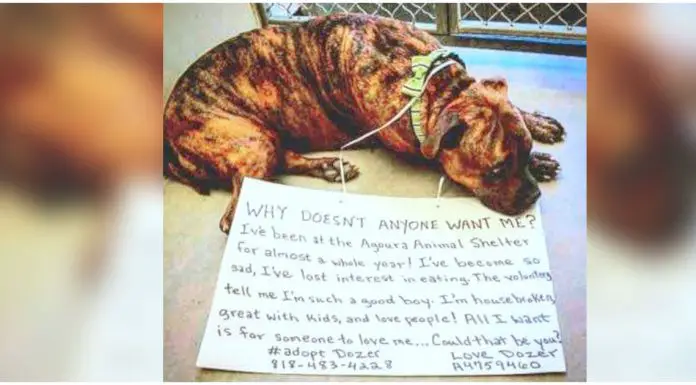 WHY DOESN'T ANYONE WANT ME?
I've been at the Agoura Animal Shelter
for almost a whole year! I've become so
sad, I've lost interest in eating. The volunteers
tell me I'm such a good boy. I'm housebroken,
great with kids, and love people! All I want
is for someone to love me... Could that be you?
#adopt Dozer
818-483-4228
Love Dozer
A4759460